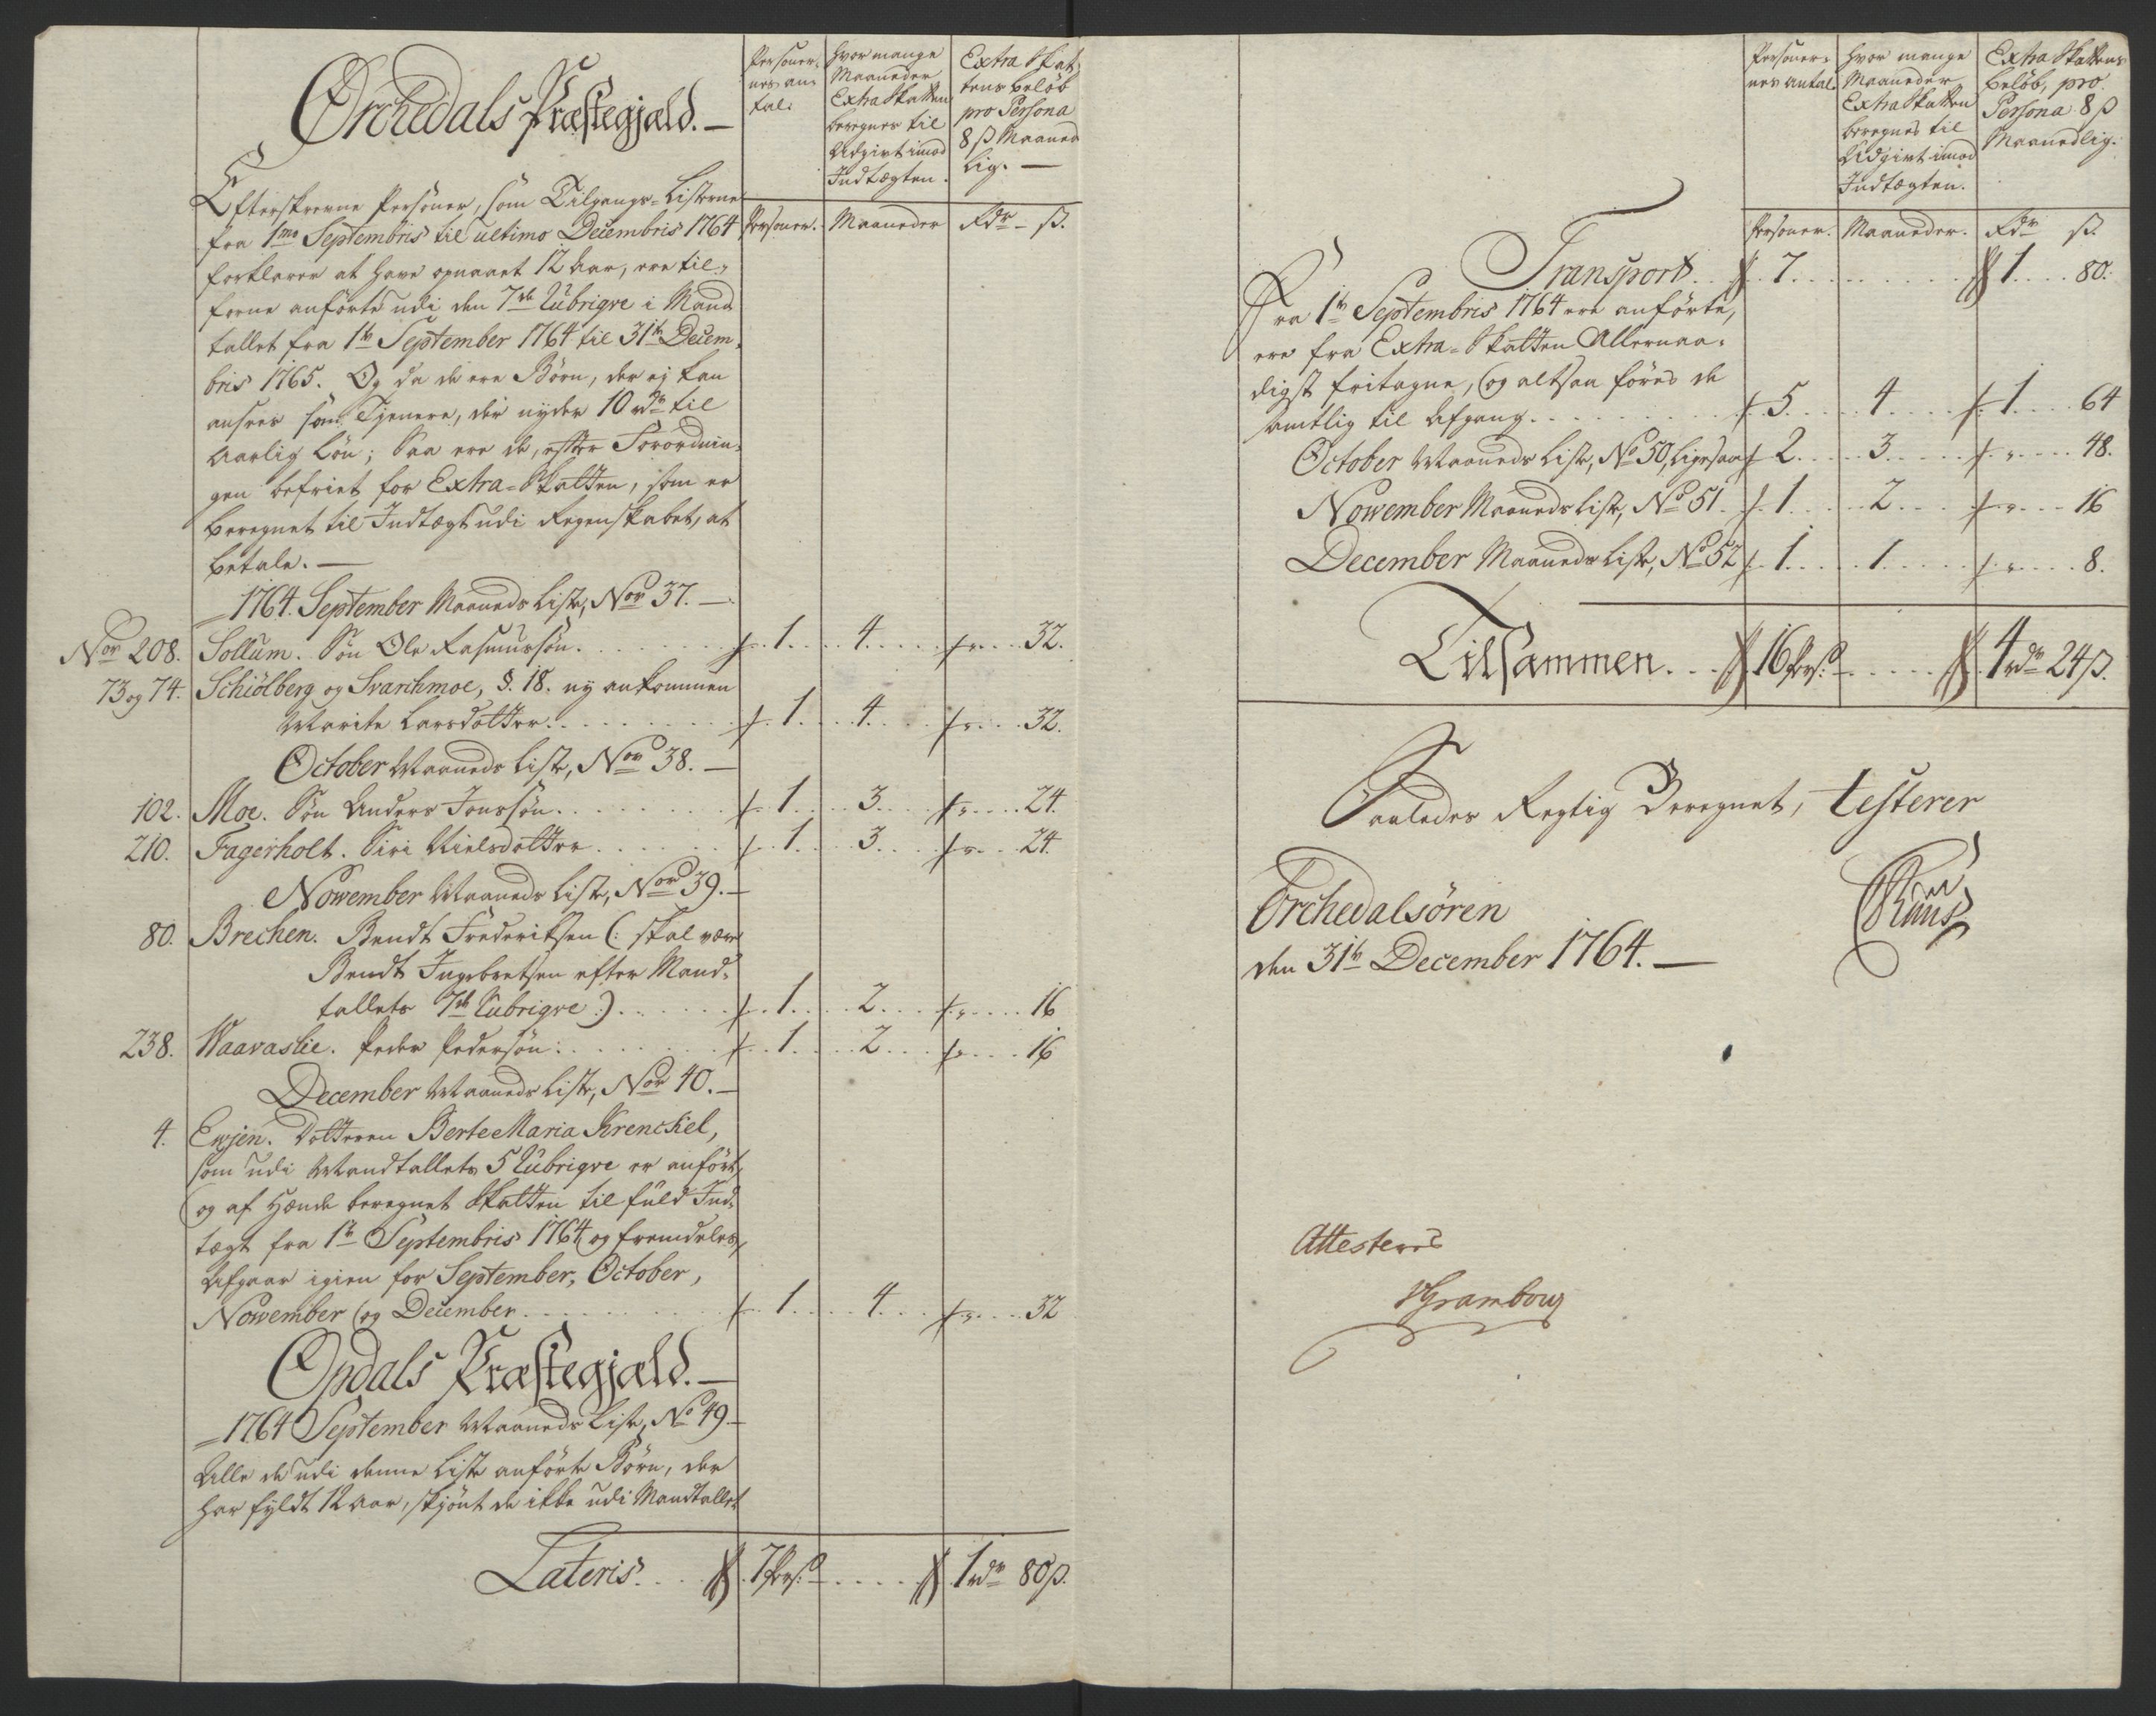 Orchedals Præstegjæld.
Personer-
nes an-
tal.
Hvor mange
Maaneder
Extra Skatten
beregnes til
Udgivt imod
Indtægten.
Extra Skat-
tens beløb
pro Persona
8 ß Maaned
lig. —
Personer. Maaneder Rdr - ß.
Efterskrevne Personer, som Tilgangs-Listerne
fra 1mo Septembris til ultimo Decembris 1764
forklarer at have opnaaet 12 Aar, ere til-
forne anførte udi den 7de Rubriqve i Mand
tallet fra 1te September 1764 til 31te Decem-
bris 1765. Og da de ere Børn, der ej kan
ansees som Tjenere, der nyder 10 rdr til
Aarlig Løn; Saa ere de, efter Forordnin-
gen befriet for Extra-Skatten, som er
beregnet til Indtægt udi Regenskabet, at
betale. —
1764. September Maaneds Liste, No 37. —
No 208. Sollum. Søn Ole Rasmussøn. 1. 4. 32.
73 og 74. Schiølberg og Svarchmoe, §. 18. ny ankommen
Marite Larsdatter. 1. 4. 32.
October Maaneds Liste, No 38. —
102. Moe. Søn Anders Jonssøn. 1. 3. 24.
210. Fagerholt. Siri Nielsdatter 1. 3. 24.
November Maaneds Liste, No 39. —
80. Brechen. Bendt Frederiksen (: skal være
Bendt Ingebretsen efter Mand-
tallets 7de Rubriqve :) 1. 2. 16
238. Waavaslie. Peder Pedersøn. 1. 2. 16
December Maaneds Liste, No 40. —
4. Evjen. Datteren Berte Maria Krenckel,
som udi Mandtallets 5 Rubriqve er anført,
og af hende beregnet Skatten til fuld Ind-
tægt fra 1te Septembris 1764 og fremdeles,
Afgaar igien for September, October,
November og December 1. 4. 32
Opdals Præstegjæld. —
1764 September Maaneds Liste, No 49. —
Alle de udi denne Liste anførte Børn, der
har fyldt 12 Aar, skjønt de ikke udi Mandtallet
Lateris. 7 Pers: 1 rdr 80 ß.
Personer-
nes antal.
Hvor mange
Maaneder
Extra Skatten
beregnes til
Udgivt imod
Indtægten.
Extra Skattens
beløb, pro
Persona 8 ß
Maanedlig.
Personer. Maaneder. Rdr ß.
Transport. 7. 1. 80.
Fra 1te Septembris 1764 ere anførte,
ere fra Extra-Skatten Allernaa-
digst fritagne, og altsaa føres de
samtlig til Afgang. 5. 4. 1. 64
October Maaneds Liste, No 50, ligesaa 2. 3. 48.
November Maaneds Liste, No 51. 1. 2. 16
December Maaneds Liste, No 52 1. 1. 8.
Tilsammen. 16 Pers: 4 rdr 24 ß.
Saaledes Rigtig Beregnet, testerer
Orchedalsøren
den 31te December 1764. —
Attesteres